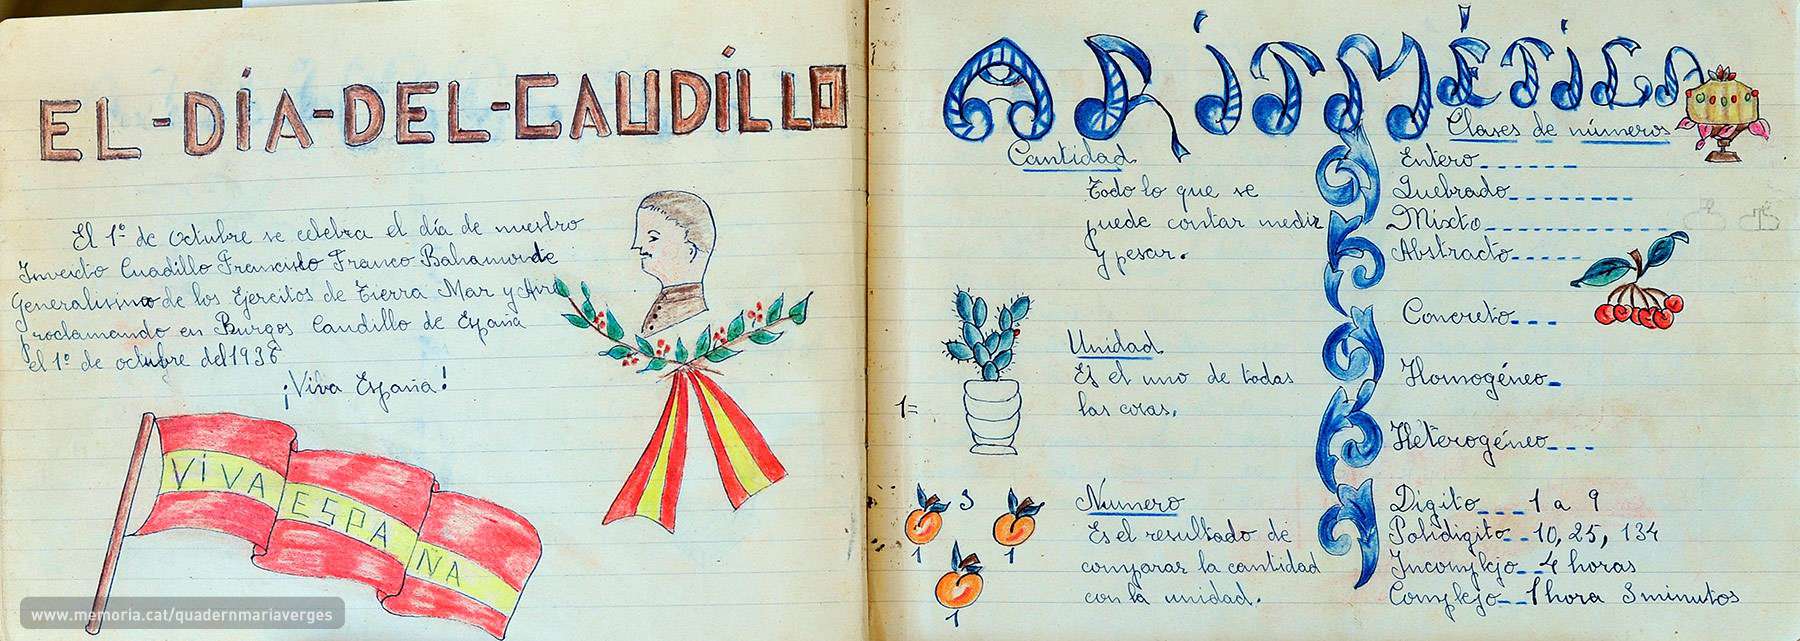 EL-DÍA-DEL-CAUDILLO
El 1º de octubre se celebra el día de nuestro
Invicto Cuadillo Francisko Franco Bahamonde
Generalisimo de los Ejercitos de Tierra Mar y Aire
Proclamando en Burgos Caudillo de España
el 1º de octubre del 1936
¡Viva España!
VIVA ESPAÑA
www.memoria.cat/quadernmariaverges
ARITMÉTICA
Cantidad
Todo lo que se
puede contar medir
y pesar.
1=
Unidad
Es el uno de todas
las cosas.
3
1
1
1
Numero
Es el resultado de
comparar la cantidad
con la unidad.
Clases de números
Entero
Quebrado
Mixto
Abstracto
Concreto
Homogéneo
Heterogéneo
Digito 1 a 9
Polidigito 10, 25, 134
Incomplejo 4 horas
Complejo 1 hora 3 minutos